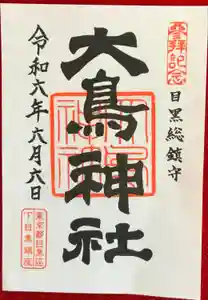 登拝記念
目黒総鎮守
大鳥神社
令和六年六月六日
東京都目黒区
下目黒鎮座